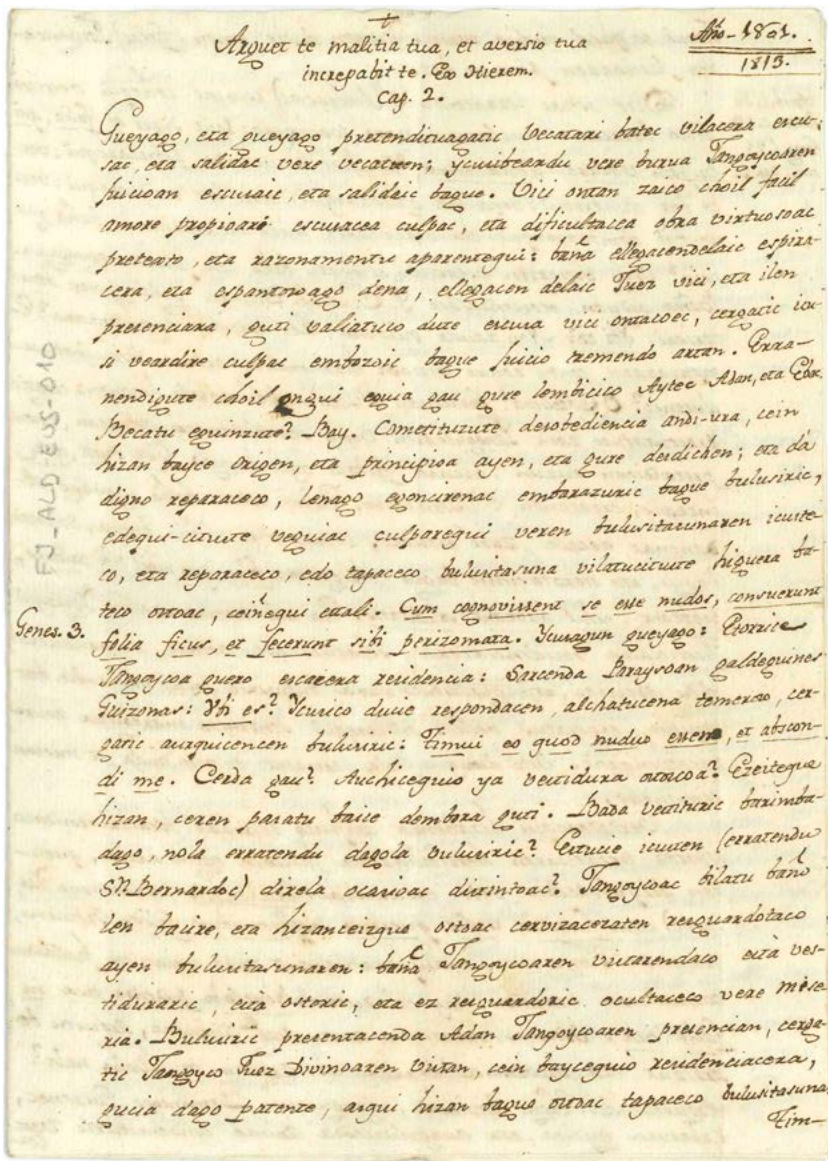 +
Arguet te malitia tua, et aversio tua
increpabit te. Ex Hierem.
Cap. 2.
Año-1801.
1813.
Gueyago, eta gueyago pretendituagatic becatari batec bilacera escu-
sac, eta salidac bere becatuen; ycusibeardu bere burua Jangoycoaren
juicioan escusaic, eta salidaic bague. Vici ontan zaico choil facil
amore propioari escusacea culpac, eta dificultacea obra virtuosoac
pretexto, eta razonamentu aparentequi: bañ ellegacendelaic espira-
cera, eta espantosoago dena, ellegacen delaic Juez vici, eta ilen
presenciara, guti valiatuco dute escusa vici ontacoec, cergatic icu-
si beardire culpac embozoic bague juicio tremendo artan. Erra-
nendigute choil ongui eguia gau gure lembicico Aytec Adan, eta Evac.
Becatu eguinzute? Bay. Cometituzute desobediencia andi-ura, cein
hizan bayce origen, eta principioa ayen, eta gure desdichen; eta da
digno reparaceco, lenago egoncirenac embarazuric bague bulusiric,
edegui-cituzte veguiac culparequi beren bulusitasunaren icuste-
co, eta reparaceco, edo tapaceco bulusitasuna bilatucituzte higuera ba-
teco ostoac, ceiñequi estali. Cum cognovissent se esse nudos, consuerunt
Genes. 3. folia ficus, et fecerunt sibi perizomata. Ycusagun gueyago: Etorrice
Jangoycoa guero escacera residencia: Sarcenda Paraysoan galdeguines
Guizonas: Ubi es? Ycusico ducie respondacen, alchatucena temeroso, cer-
gatic aurquicencen bulusiric: Timui eo quod nudus essem, et abscon-
di me. Cerda gau? Auchiceguio ya vestidura ostozcoa? Ezeitegue
hizan, ceren pasatu baice dembora guti. Bada vestituric barimba-
dago, nola erratendu dagola bulusiric? Eztucie icusten (erratendu
Sn. Bernardoc) direla ocasioac distintoac? Jangoycoac bilatu bañ
len bacire, eta hizanceizquo ostoac cerbizaceraten resguardotaco
ayen bulusitasunaren: bañ Jangoycoaren vistarendaco eztá ves-
tiduraric, eztá ostoric, eta ez resguardoric ocultaceco vere mise-
ria. Bulusiric presentacenda Adan Jangoycoaren presencian, cerga-
tic Jangoyco Juez Divinoaren vistan, cein bayceguio residenciacera,
gucia dago patente, argui hizan bague ostoac tapaceco bulusitasuna.
Tim-
FJ_ALD EUS-010